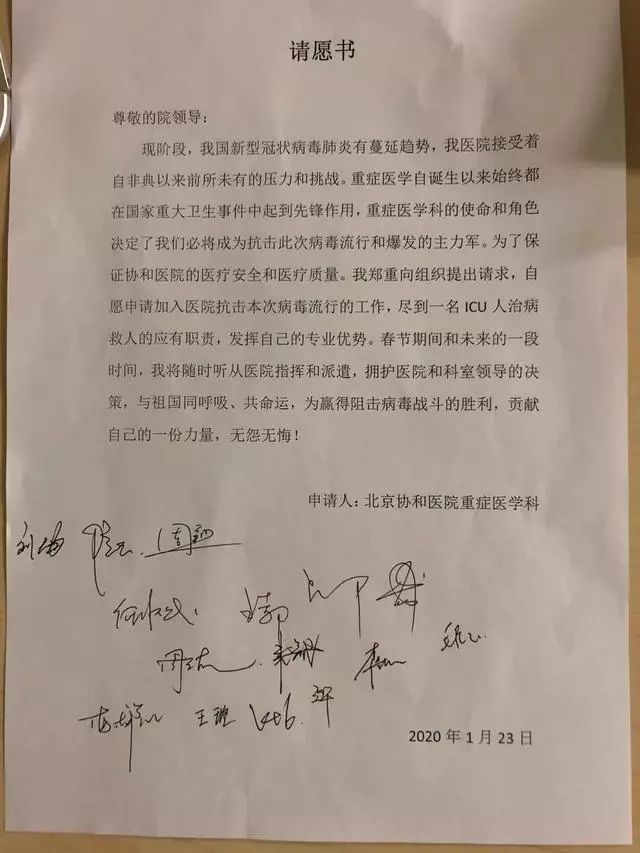 请愿书
尊敬的院领导：
现阶段，我国新型冠状病毒肺炎有蔓延趋势，我医院接受着
自非典以来前所未有的压力和挑战。重症医学自诞生以来始终都
在国家重大卫生事件中起到先锋作用，重症医学科的使命和角色
决定了我们必将成为抗击此次病毒流行和爆发的主力军。为了保
证协和医院的医疗安全和医疗质量。我郑重向组织提出请求，自
愿申请加入医院抗击本次病毒流行的工作，尽到一名 ICU 人治病
救人的应有职责，发挥自己的专业优势。春节期间和未来的一段
时间，我将随时听从医院指挥和派遣，拥护医院和科室领导的决
策，与祖国同呼吸、共命运，为赢得阻击病毒战斗的胜利，贡献
自己的一份力量，无怨无悔！
申请人：北京协和医院重症医学科
2020 年 1 月 23 日